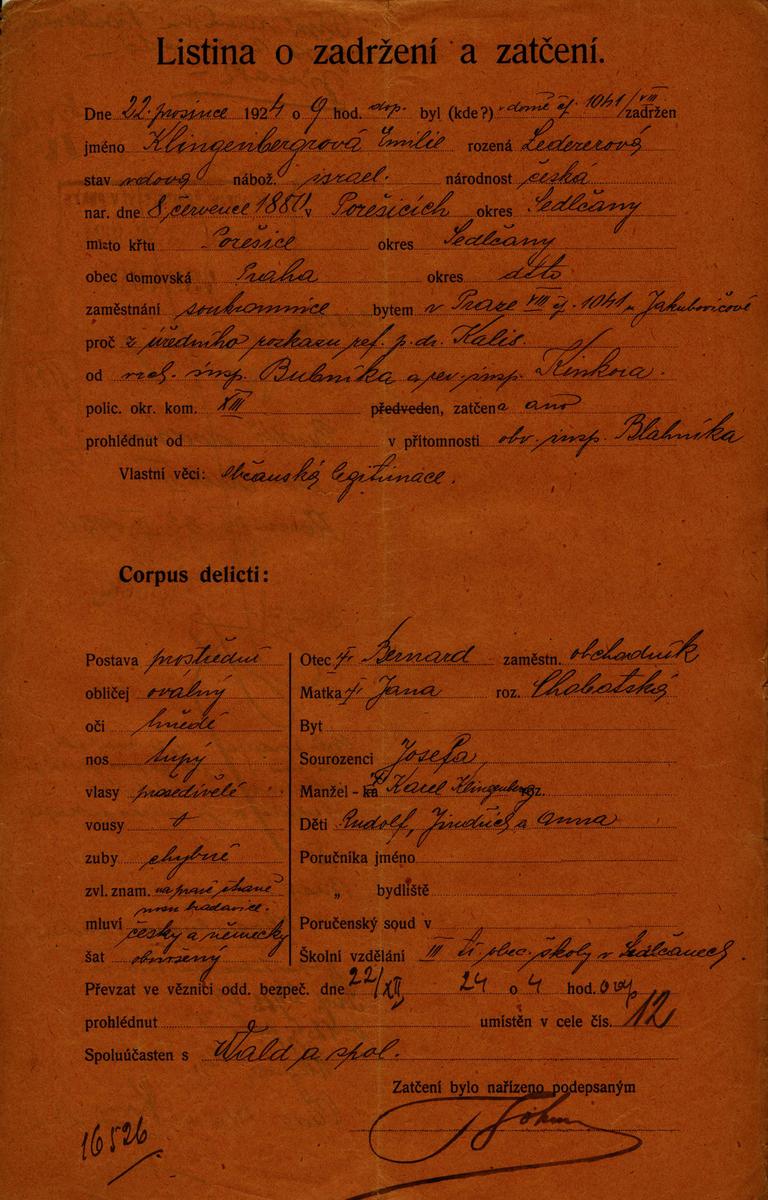 Listina o zadržení a zatčení.
Dne 22. prosince 1924 o 9 hod. dop. byl (kde?) v domě čj. 1041/VIII zadržen
jméno Klingenbergrová Emilie rozená Ledererová
stav vdova nábož. israel. národnost česká
nar. dne 8. července 1880 v Porešicích okres Sedlčany
místo křtu Porešice okres Sedlčany
obec domovská Praha okres dtto
zaměstnání soukromnice bytem v Praze VIII čj. 1041 u Jakubovičové
proč z úředního rozkazu ref. p. dr. Kalis.
od vrch. insp. Bubníka a rev. insp. Kinkora.
polic. okr. kom. XIII předveden, zatčena ano
prohlédnut od v přítomnosti obv. insp. Blahníka
Vlastní věci: občanská legitimace.
Corpus delicti:
Postava prostřední
obličej oválný
oči hnědé
nos tupý
vlasy prošedivělé
vousy
zuby chybné
zvl. znam. na pravé straně
nosu bradavice.
mluví česky a německy
šat obnošený
Otec † Bernard zaměstn. obchodník
Matka † Jana roz. Chobotská
Byt
Sourozenci Josefa
Manžel - ka † Karel Klingenberg roz.
Děti Rudolf, Jindřich a Anna
Poručníka jméno
„ bydliště
Poručenský soud v
Školní vzdělání III tř. obec. školy v Sedlčanech.
Převzat ve věznici odd. bezpeč. dne 22/XII 24 o 4 hod. odp
prohlédnut umístěn v cele čís. 12
Spoluúčasten s Wald a spol.
Zatčení bylo nařízeno podepsaným
16526